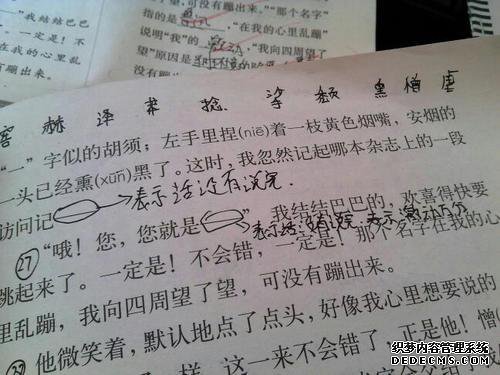 巴结结巴巴
一定是！不
在我的心里乱
有蹦出来。
可没有蹦出来。”“那个名字”
指的是
“在我的心里乱蹦”
说明“我”的
“我向四周望了
望”原因是
没有蹦出
窘 赫 泽 肃 捻 深 颓 黑 憎 虐
“一”字似的胡须；左手里捏(niē)着一枝黄色烟嘴，安烟的
一头已经熏(xūn)黑了。这时，我忽然记起哪本杂志上的一段
访问记
表示话没有说完.
㉗“哦！您，您就是
我结结巴巴的，欢喜得快要
表示话没有说完.
跳起来了。一定是！不会错，一定是！那个名字在我的心
里乱蹦，我向四周望了望，可没有蹦出来。
他微笑着，默认地点了点头，好像我心里想要说的
样，这一来不会错了，正是他！憎(
织梦内容管理系统
DEDECMS.COM